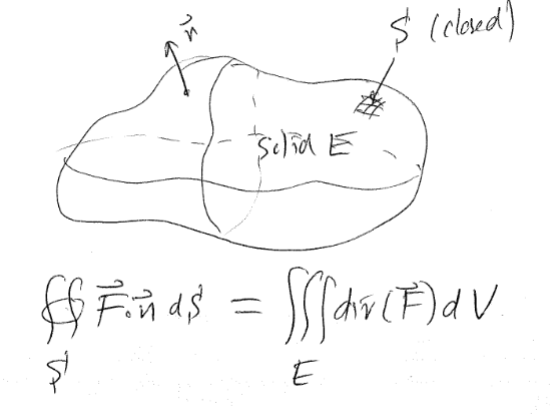 n⃗
S (closed)
solid E
∯ F⃗·n⃗ dS = ∭ div(F⃗) dV
S E